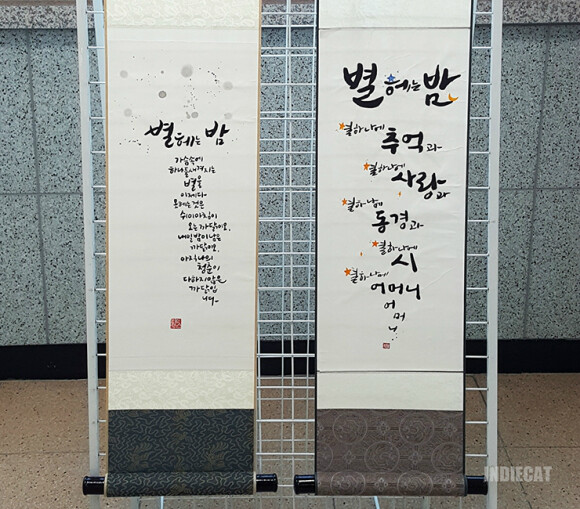 별 헤는 밤
가슴속에
하나 둘 새겨지는
별을
이제 다
못 헤는 것은
쉬이 아침이
오는 까닭이오,
내일 밤이 남은
까닭이오,
아직 나의
청춘이
다하지 않은
까닭입
니다.
별 헤는 밤
별 하나에
추억과
별 하나에
사랑과
별 하나에
동경과
별 하나에
시
별 하나에
어머니
어
머
니
INDIECAT